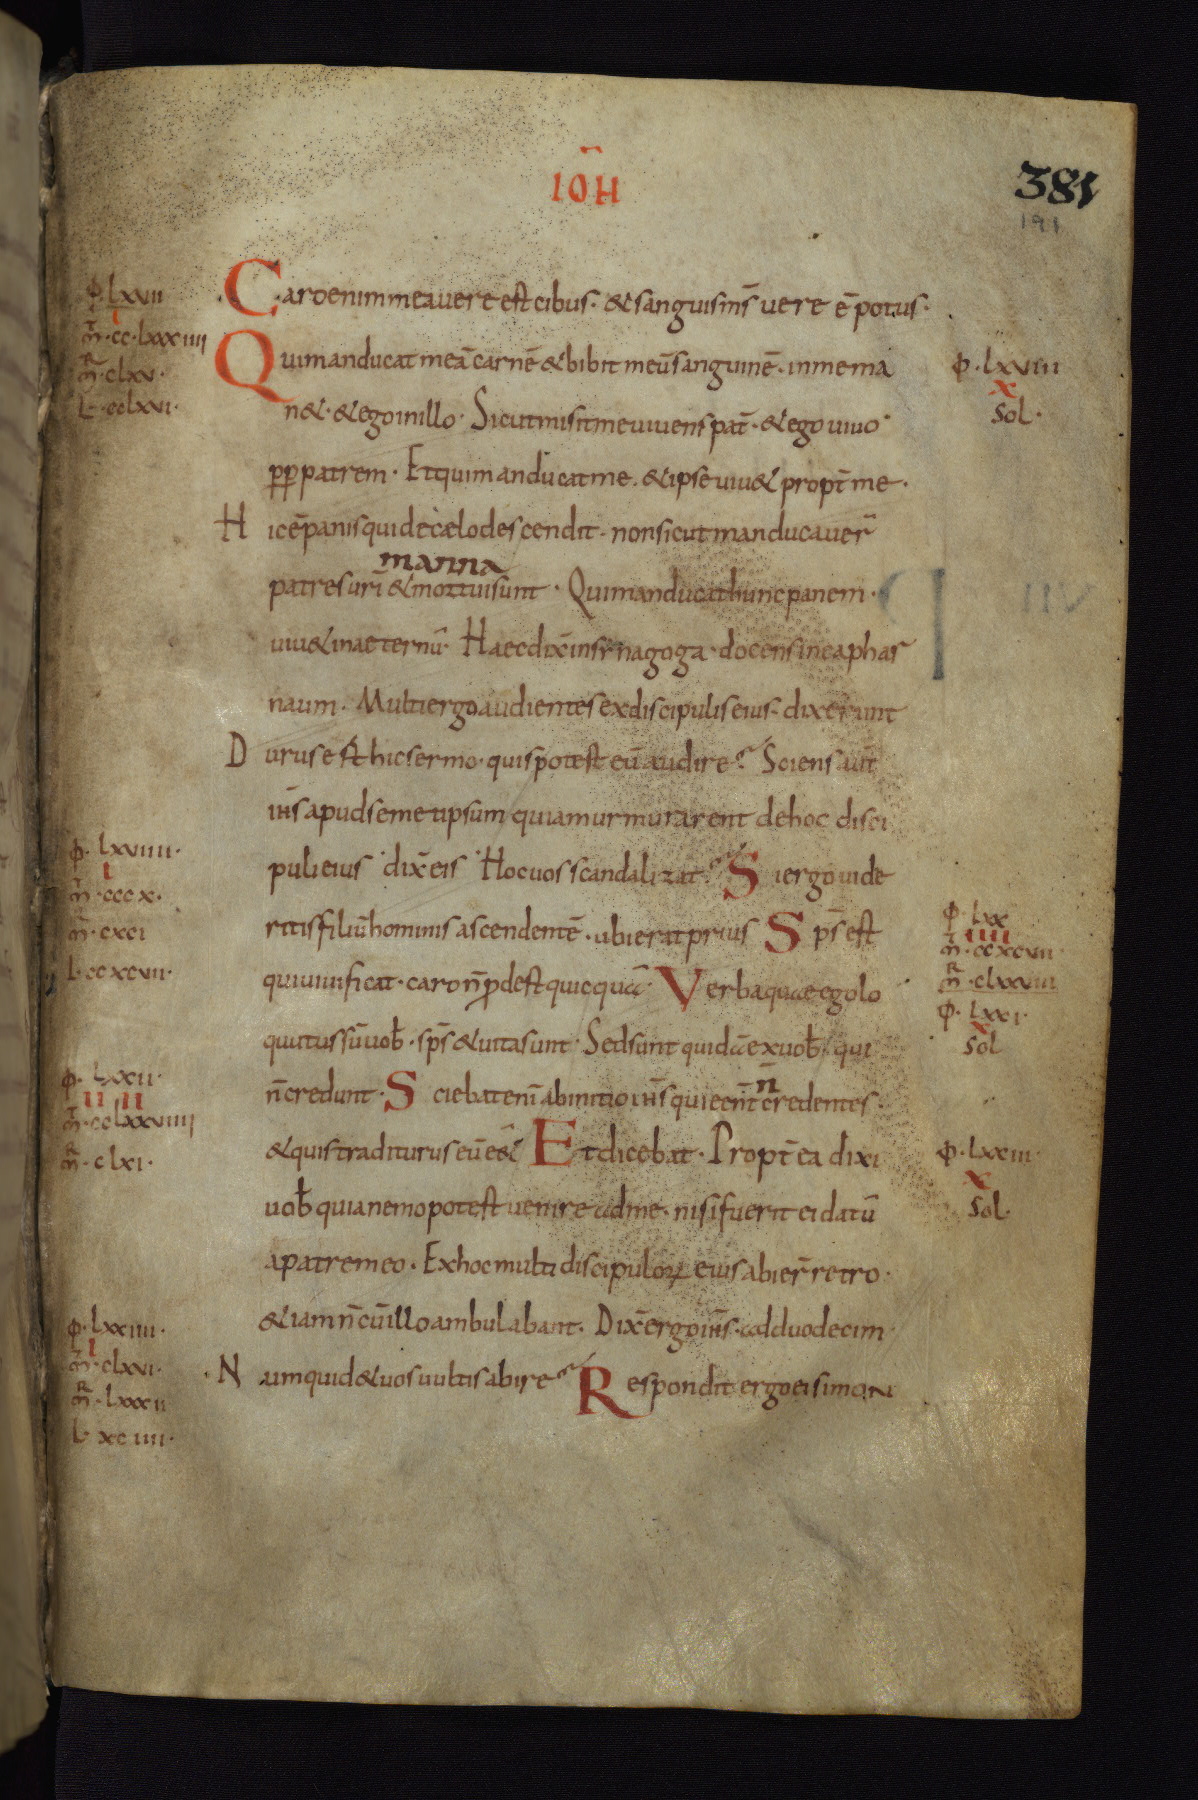 IOH̄
381
191
Φ·lxvii
i
m̄·cc·lxxxiiii
m̄·clxv·
L·cclxvi·
Caro enim mea vere est cibus· & sanguis ms̄ vere ē potus·
Qui manducat meā carnē & bibit meū sanguinē· in me ma
n&· & ego in illo· Sicut misit me vivens pat̄· & ego vivo
ppatrem· Et qui manducat me· & ipse viv& propt̄ me·
Hic ē panis qui de cælo descendit· non sicut manducaver̄
manna
patres uri̅ & mortui sunt· Qui manducat hunc panem·
viv& in aeternū· Haec dix̄ in synagoga· docens in caphar
naum· Multi ergo audientes ex discipulis eius· dixerunt
Durus est hic sermo· quis potest eū audire? Sciens aut̄
iħs apud semetipsum quia murmurarent de hoc disci
puli eius· dix̄ eis· Hoc vos scandalizat? Si ergo vide
ritis filiū hominis ascendentē· ubi erat prius Sps̄ est
qui vivificat· caro n̄ pdest quicquā· Verba quae ego lo
quutus sū vob̄· sps̄ & vita sunt· Sed sunt quidā ex vob̄· qui
n̄ credunt· Sciebat enī ab initio iħs qui eēnt n̄ credentes·
& quis traditurus eū eēt Et dicebat· Propt̄ ea dixi
vob̄ quia nemo potest venire ad me· nisi fuerit ei datū
a patre meo· Ex hoc multi discipuloꝝ eius abier̄ retro·
& iam n̄ cū illo ambulabant· Dix̄ ergo iħs· ad duodecim·
Numquid & vos vultis abire? Respondit ergo ei simon
Φ·lxviii
x
Sol·
Φ·lxviiii·
i
m̄·cccx·
m̄·cxci
L·ccxcvii·
Φ·lxx
iiii
m̄·ccxcvii
m̄·clxxviii
Φ·lxxi·
x
Sol
Φ·lxxii·
iiii
m̄·cclxxviiii
m̄·clxi·
Φ·lxxiii·
x
Sol·
Φ·lxxiiii·
i
m̄·clxvi·
m̄·lxxxii
L·xciiii·